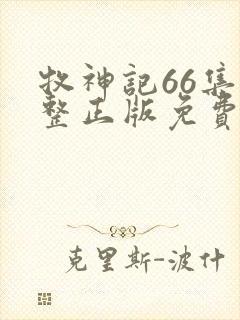 牧神記66集
整正版免費
克里斯-波什